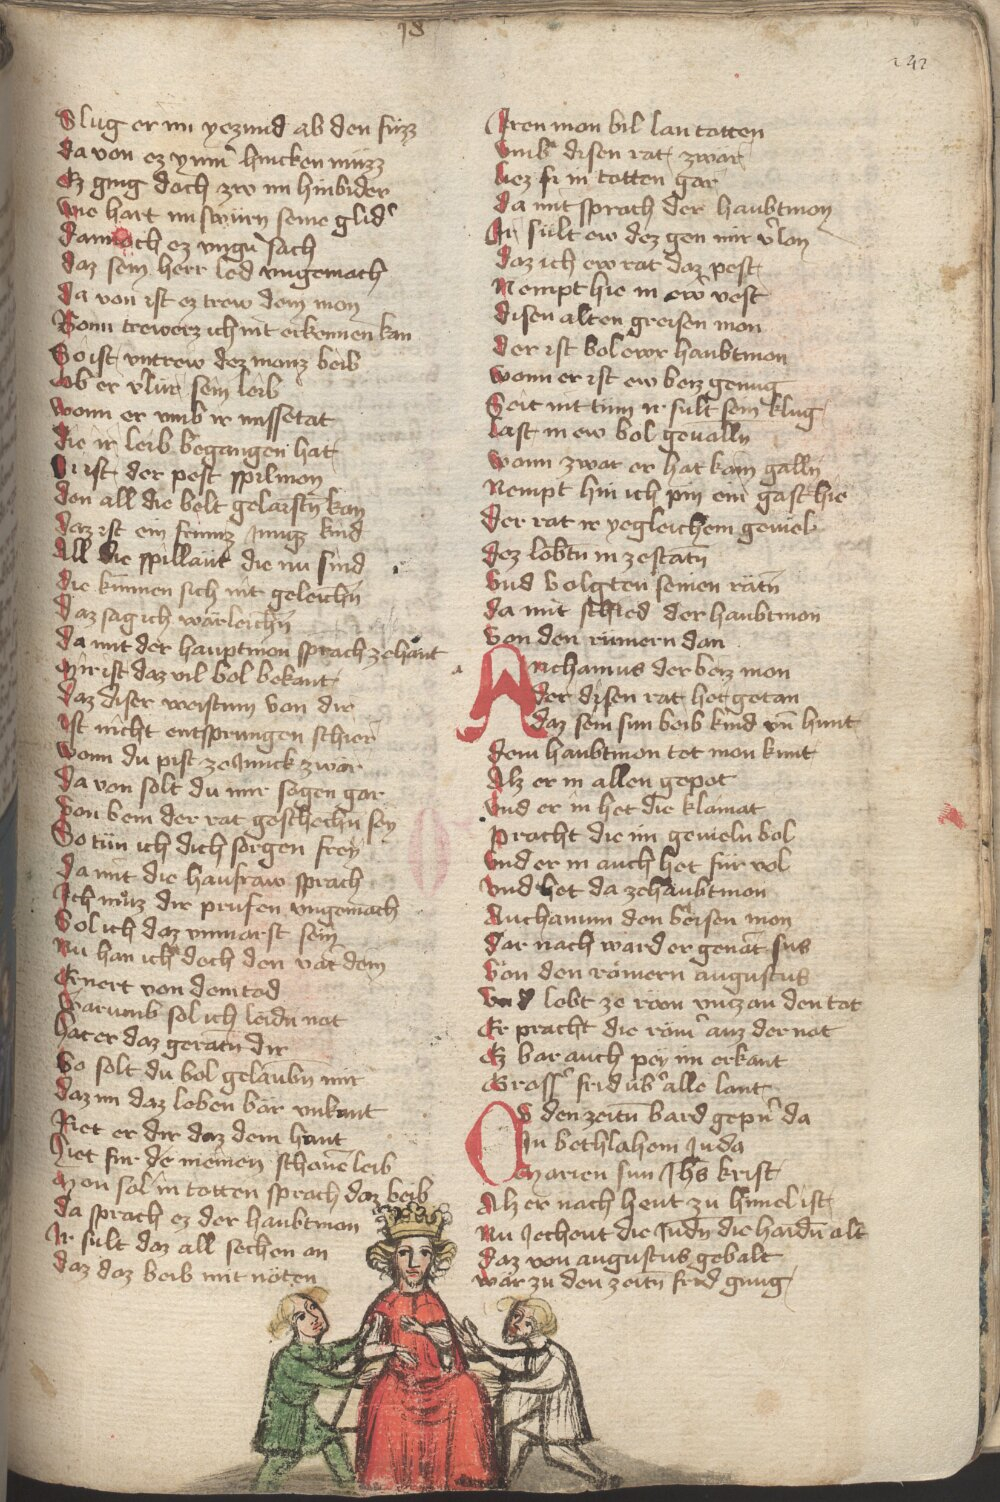 18
242
Slug er im yezund ab den füzz
da von ez ymm̄ hincken müzz
Ez ging doch zw im hinbider
wie hart im swürn seine glid'
dannoch ez ungn sach
daz sein herr led ungemach
da von ist ez trew dem mon
Wonn trewerz ich nit erkennen kan
So ist untrew dez manz beib
ob er v'lür sein leib
wonn er umb ir missetat
die ir leib begangen hat
Hi ist der pest spilmon
den all die belt gelaistn kan
daz ist ein frumz Jungz kind
All die spilläut die nu sind
die kunnen sich nit geleichn
daz sag ich wärleichn
da mit der hauptmon sprach zehant
Mir ist daz vil bol bekant
daz diser weistum von dir
ist nicht entsprungen schier
wonn du pist ze Junck zwar
da von solt du mir sagen gar
von bem der rat geschechn sey
So tün ich dich sorgen frey
da mit die hausfraw sprach
Ich müz dir prüfen ungemach
Sol ich daz unmarst sein
Nu han ich doch den vat' dein
Ernert von dem tod
Warumb sol ich leidn not
Hat er daz geratn dir
So solt du bol gelaubn mir
daz im daz loben bär unkant
Riet er dir daz dem hunt
Hiet für de meinen schonē leib
Mon sol in totten sprach daz beib
da sprach ez der haubtmon
Ir sült daz all sechen an
daz daz beib mit nöten
Iren mon bil lan totten
umb disen rat zwar
hiez si in totten gar
da mit sprach der haubtmon
Ir sült ew dez gen mir v'lon
daz ich ew rat daz pest
Nempt hie in ew vest
disen alten greisen mon
der ist bol ewr haubtmon
wonn er ist ew beiz genug
Seit mit tim ir sult sein klug
last in ew bol geualln
wonn zwar er hat kain galln
Nempt hin ich pin ein gast hie
der rat ir yegleichem geuiel
dez lobtn in ze statn
und volgten seinen rätn
da mit schied der haubtmon
von den römern dan
Anchamus der beiz mon
der disen rat het getan
daz sein sun beib kind un̄ hunt
dem haubtmon tet mon kunt
Alz er in allen gepot
und er in het die klainat
pracht die im geuieln bol
und er in auch het für vol
und het da ze haubtmon
Anchanum den beisen mon
dar nach ward er genāt sus
von den römern augustus
und lobt ze rom unz an den tot
Er pracht die röm' auz der not
Ez bar auch pey im erkant
Grass' frid üb' alle lant
Oo den zeitn bard gepn̄ da
In bethlahem Juda
Marien sun Jhs krist
Alz er nach heut zu himel ist
Nu Jechent die Judn die haidn alt
daz von augustus gebalt
wär zu den zeitn frid gnug